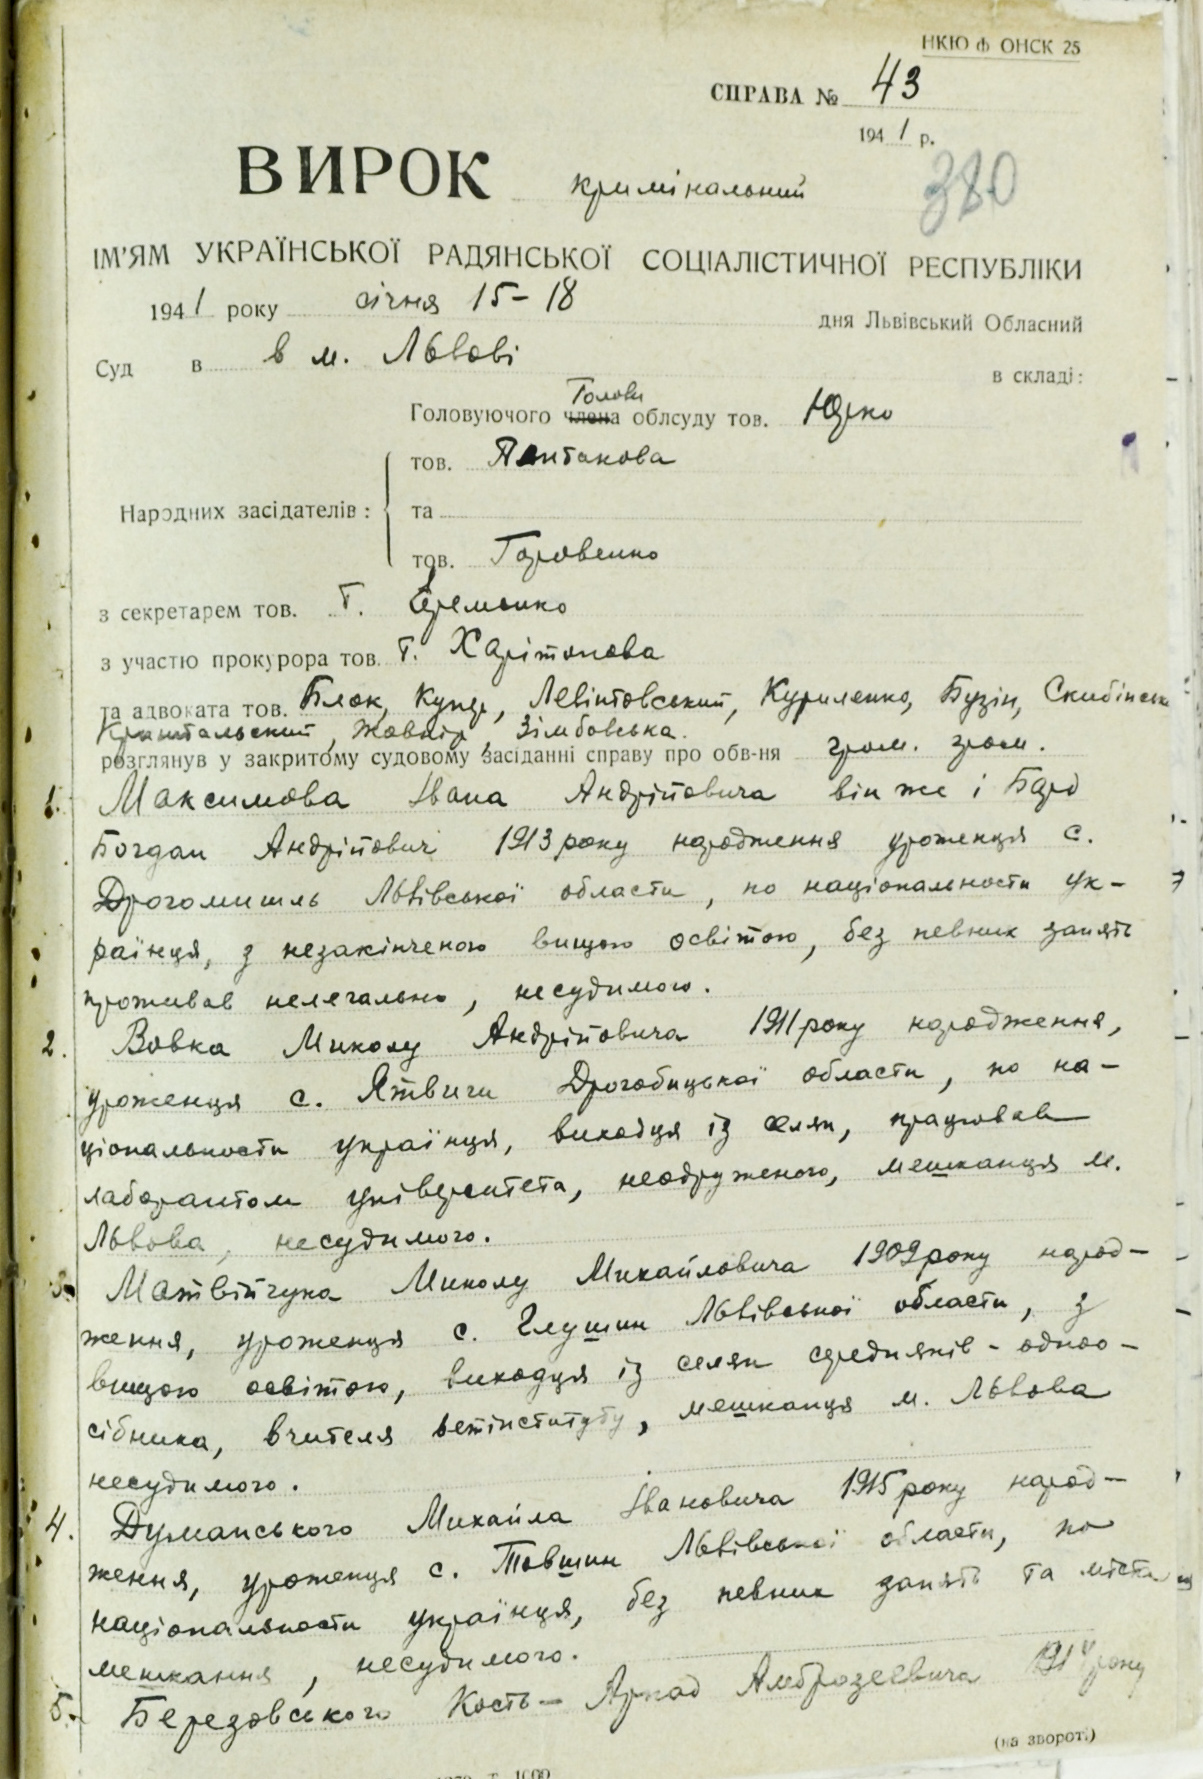 НКЮ ф ОНСК 25
СПРАВА № 43
1941 р.
ВИРОК кримінальний
380
ІМ'ЯМ УКРАЇНСЬКОЇ РАДЯНСЬКОЇ СОЦІАЛІСТИЧНОЇ РЕСПУБЛІКИ
1941 року січня 15-18 дня Львівський Обласний
Суд в в м. Львові в складі:
Голови
Головуючого члена облсуду тов. Юрко
тов.
Народних засідателів: та
тов. Горовенко
з секретарем тов. т. Єременко
з участю прокурора тов. т. Харітонова
та адвоката тов. Блок, Левінтовський, Куриленко, Бузін,
Кришталський, Жовнір, Зімбовська.
розглянув у закритому судовому засіданні справу про обв-ня гром. гром.
1. Максимова Івана Андрійовича він же і Бард
Богдан Андрійович 1913 року народження уроженця с.
Дрогомишль Львівської области, по національности ук-
раїнця, з незакінченою вищою освітою, без певних занять
проживав нелегально, несудимого.
2. Вовка Миколу Андрійовича 1911 року народження,
уроженця с. Ятвиги Дрогобицької области, по на-
ціональности українця, виходця із селян, працював
лаборантом університета, неодруженого, мешканця м.
Львова, несудимого.
3. Матвійчука Миколу Михайловича 1909 року народ-
ження, уроженця с. Глушин Львівської области, з
вищою освітою, виходця із селян середняків - одноо-
сібника, вчителя ветінституту, мешканця м. Львова
несудимого.
4. Думанського Михайла Івановича 1915 року народ-
ження, уроженця с. Товшин Львівської области, по
національности українця, без певних занять та міста
мешкання, несудимого.
5. Березовського Кость - Аркад Амброзеевича року
(на звороті)